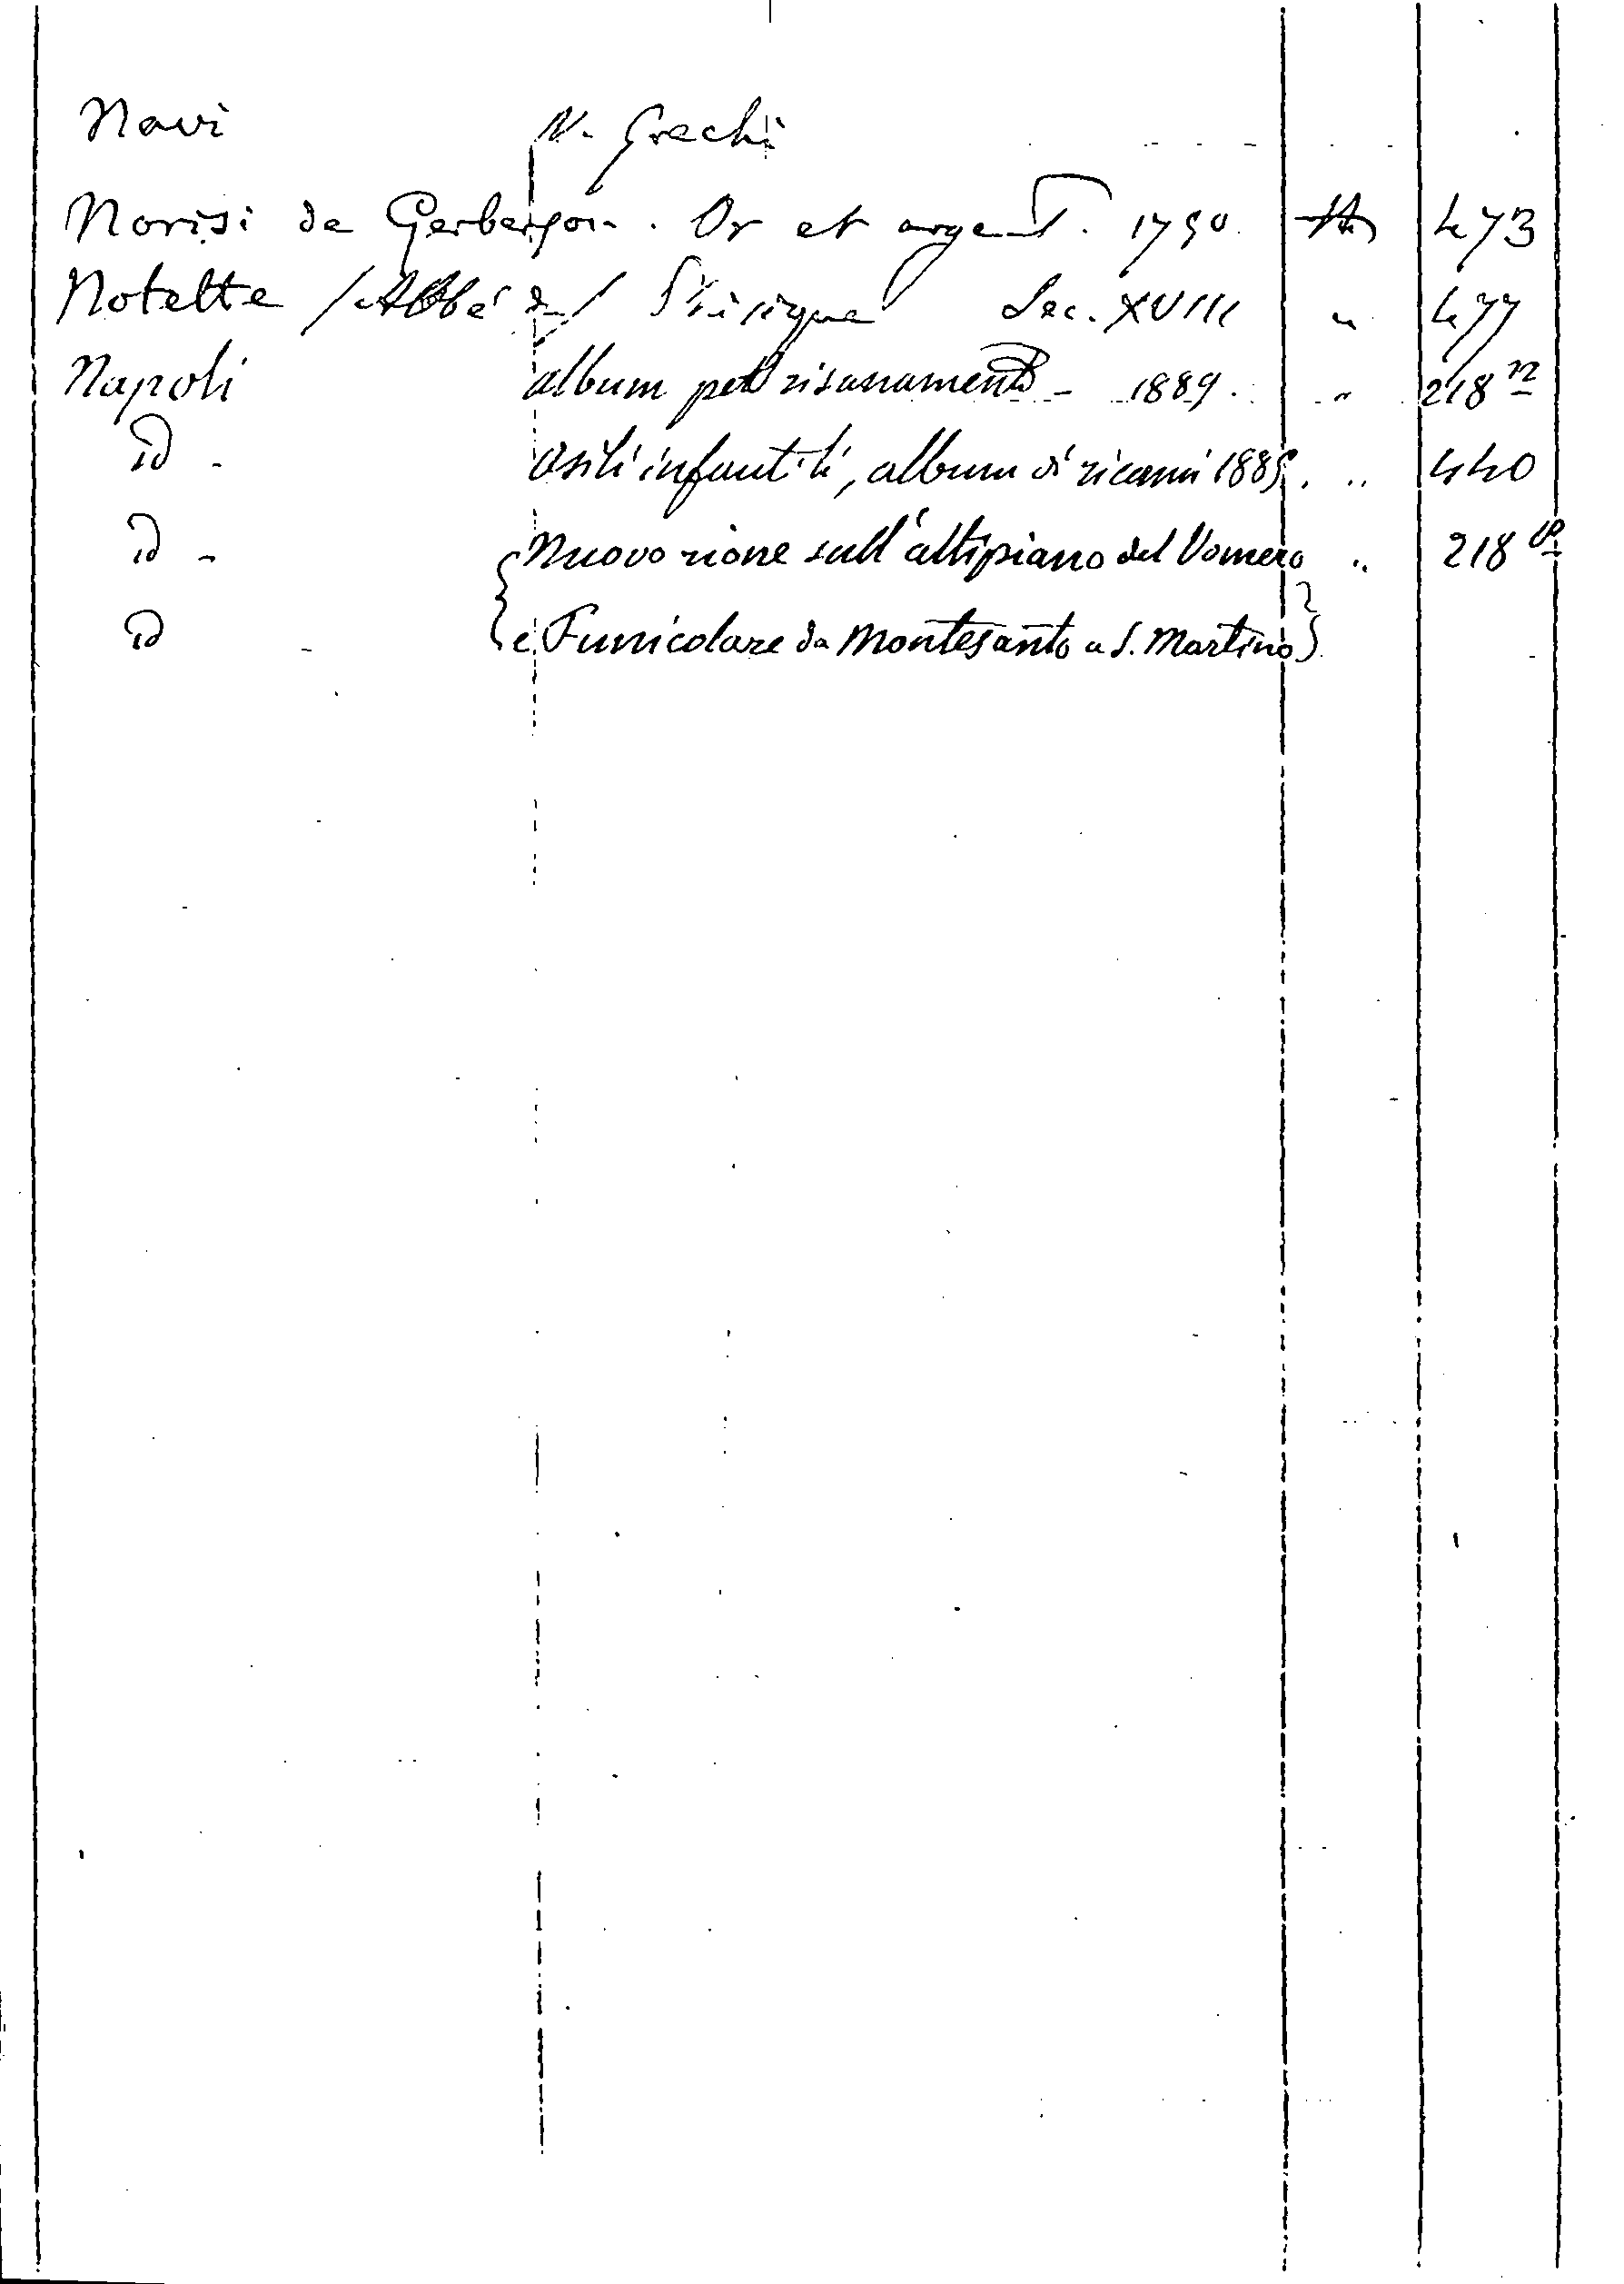 Navi V. Grechi
Norisi de Gerbergon. Or et argent. 1790. 473
Notelte /Abbé de/ Phisique Sec. XVIII " 477
Napoli album pel risanamento - 1889. " 218 n
id - Asili infantili, album di ricami 1885. " 440
id - Nuovo rione sull'altipiano del Vomero " 218
id - e Funicolare da Montesanto a S. Martino